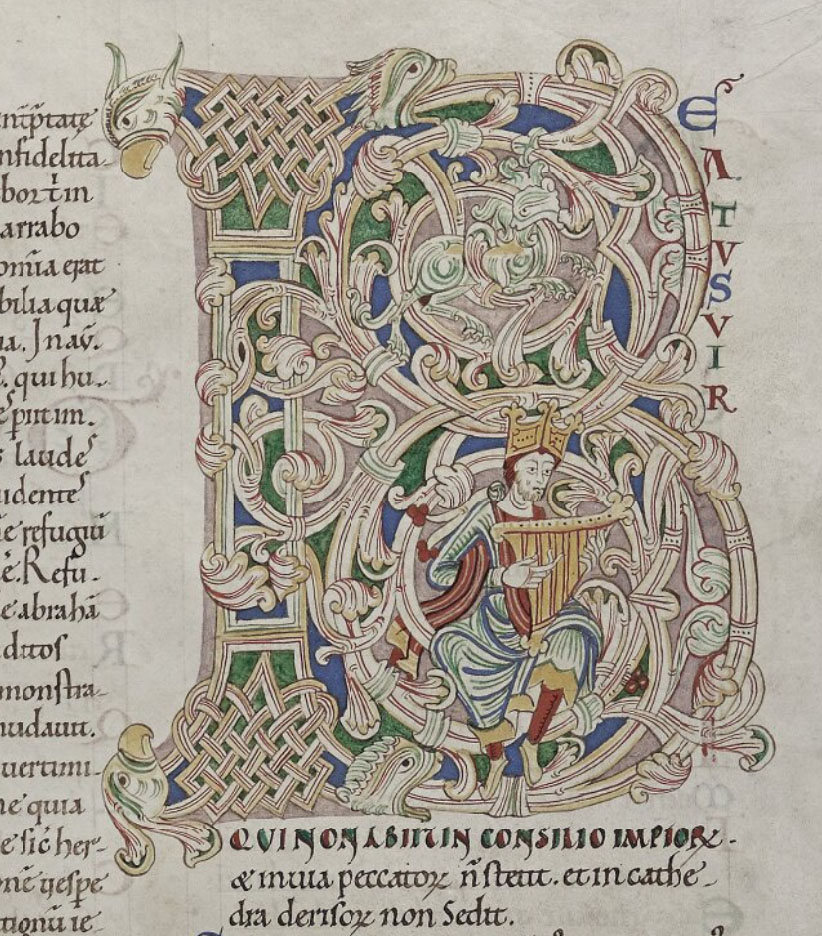 ntptate
nfidelita
bortin
arrabo
omia erat
bilia quæ
ia. In av.
qui hu
putim.
laude
udente
e refugiu
e. Refu
e abrahã
ditos
monstra
nudauit.
uertimi
ne quia
e sic her
one uespe
itionũ ie
B
E
A
T
V
S
V
I
R
QUI NON ABIIT IN CONSILIO IMPIOꝜ.
& in uia peccatoꝝ ñ stetit. et in cathe
dra derisoꝝ non Sedit.